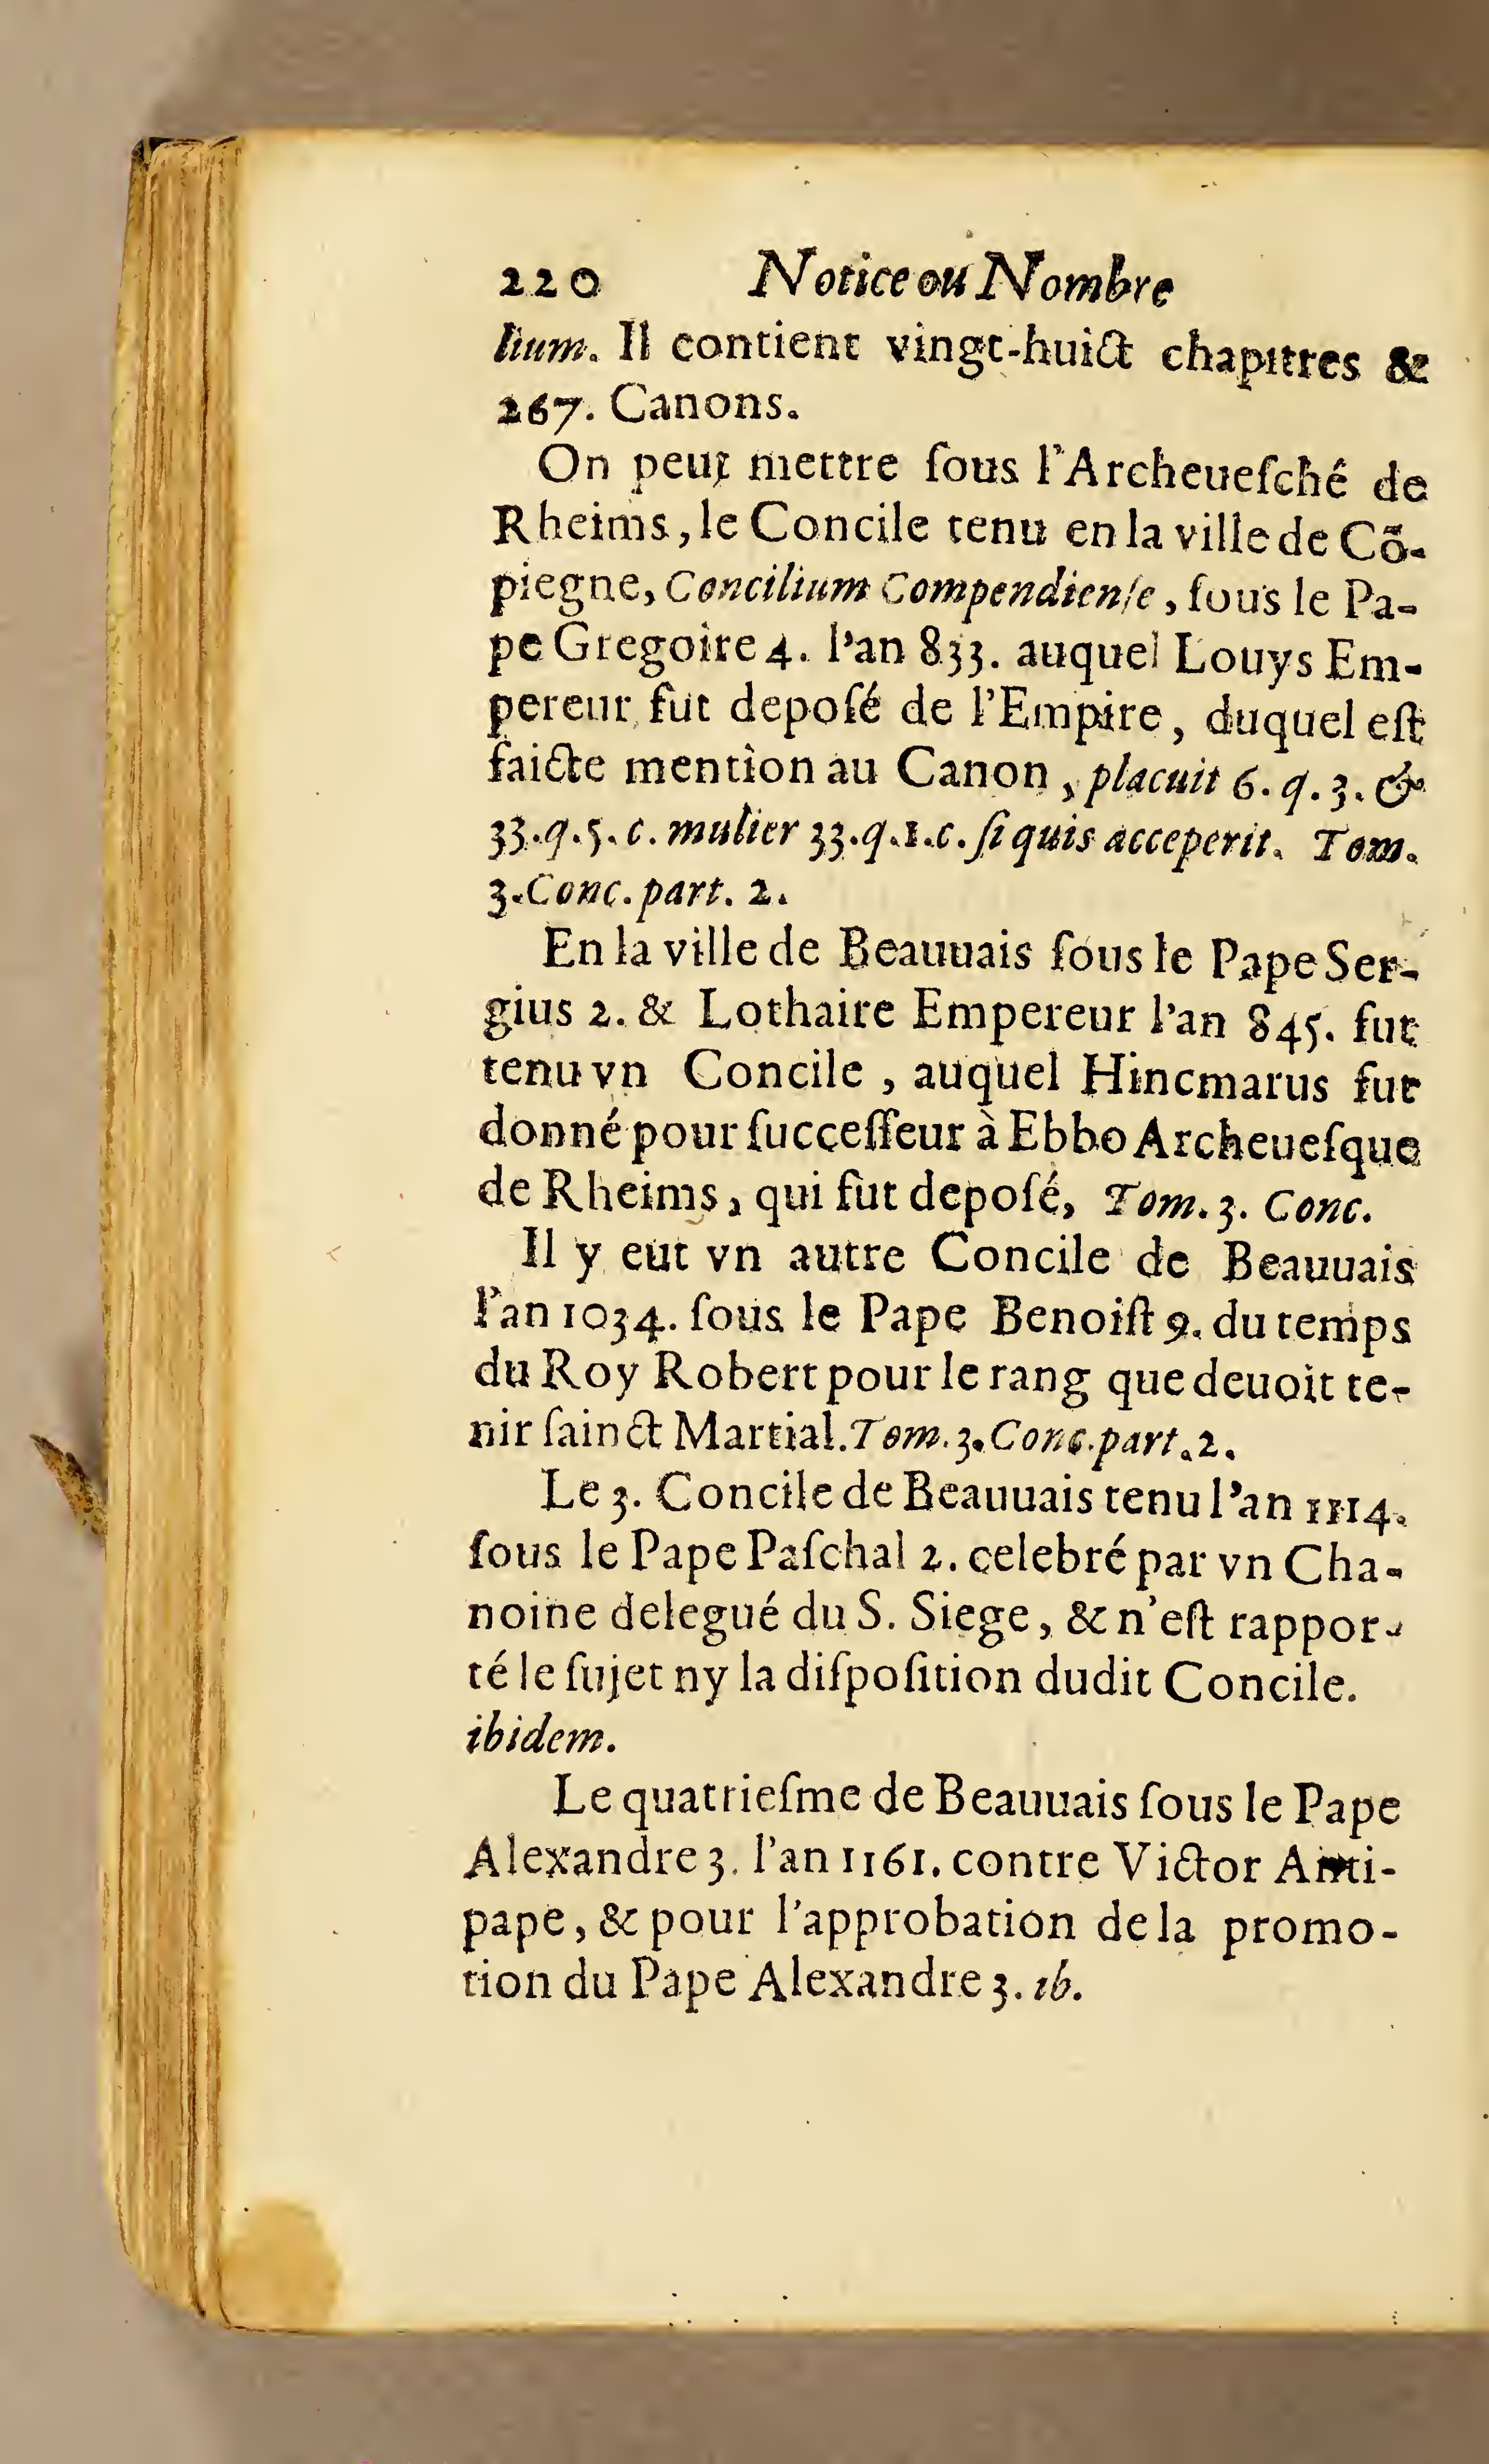 220 Notice ou Nombre
lium. Il contient vingt-huict chapitres &
267. Canons.
On peut mettre ſous l'Archeueſché de
Rheims, le Concile tenu en la ville de Cõ-
piegne, Concilium Compendienſe, ſous le Pa-
pe Gregoire 4. l'an 833. auquel Louys Em-
pereur fut depoſé de l'Empire, duquel eſt
faicte mention au Canon, placuit 6. q. 3. &
33. q. 5. c. mulier 33. q. 1. c. ſi quis acceperit. Tom.
3. Conc. part. 2.
En la ville de Beauuais ſous le Pape Ser-
gius 2. & Lothaire Empereur l'an 845. fut
tenu vn Concile, auquel Hincmarus fut
donné pour ſucceſſeur à Ebbo Archeueſque
de Rheims, qui fut depoſé, Tom. 3. Conc.
Il y eut vn autre Concile de Beauuais
l'an 1034. ſous le Pape Benoiſt 9. du temps
du Roy Robert pour le rang que deuoit te-
nir ſainct Martial. Tom. 3. Conc. part. 2.
Le 3. Concile de Beauuais tenu l'an 1114.
ſous le Pape Paſchal 2. celebré par vn Cha-
noine delegué du S. Siege, & n'eſt rappor-
té le ſujet ny la diſpoſition dudit Concile.
ibidem.
Le quatrieſme de Beauuais ſous le Pape
Alexandre 3. l'an 1161. contre Victor Anti-
pape, & pour l'approbation de la promo-
tion du Pape Alexandre 3. ib.